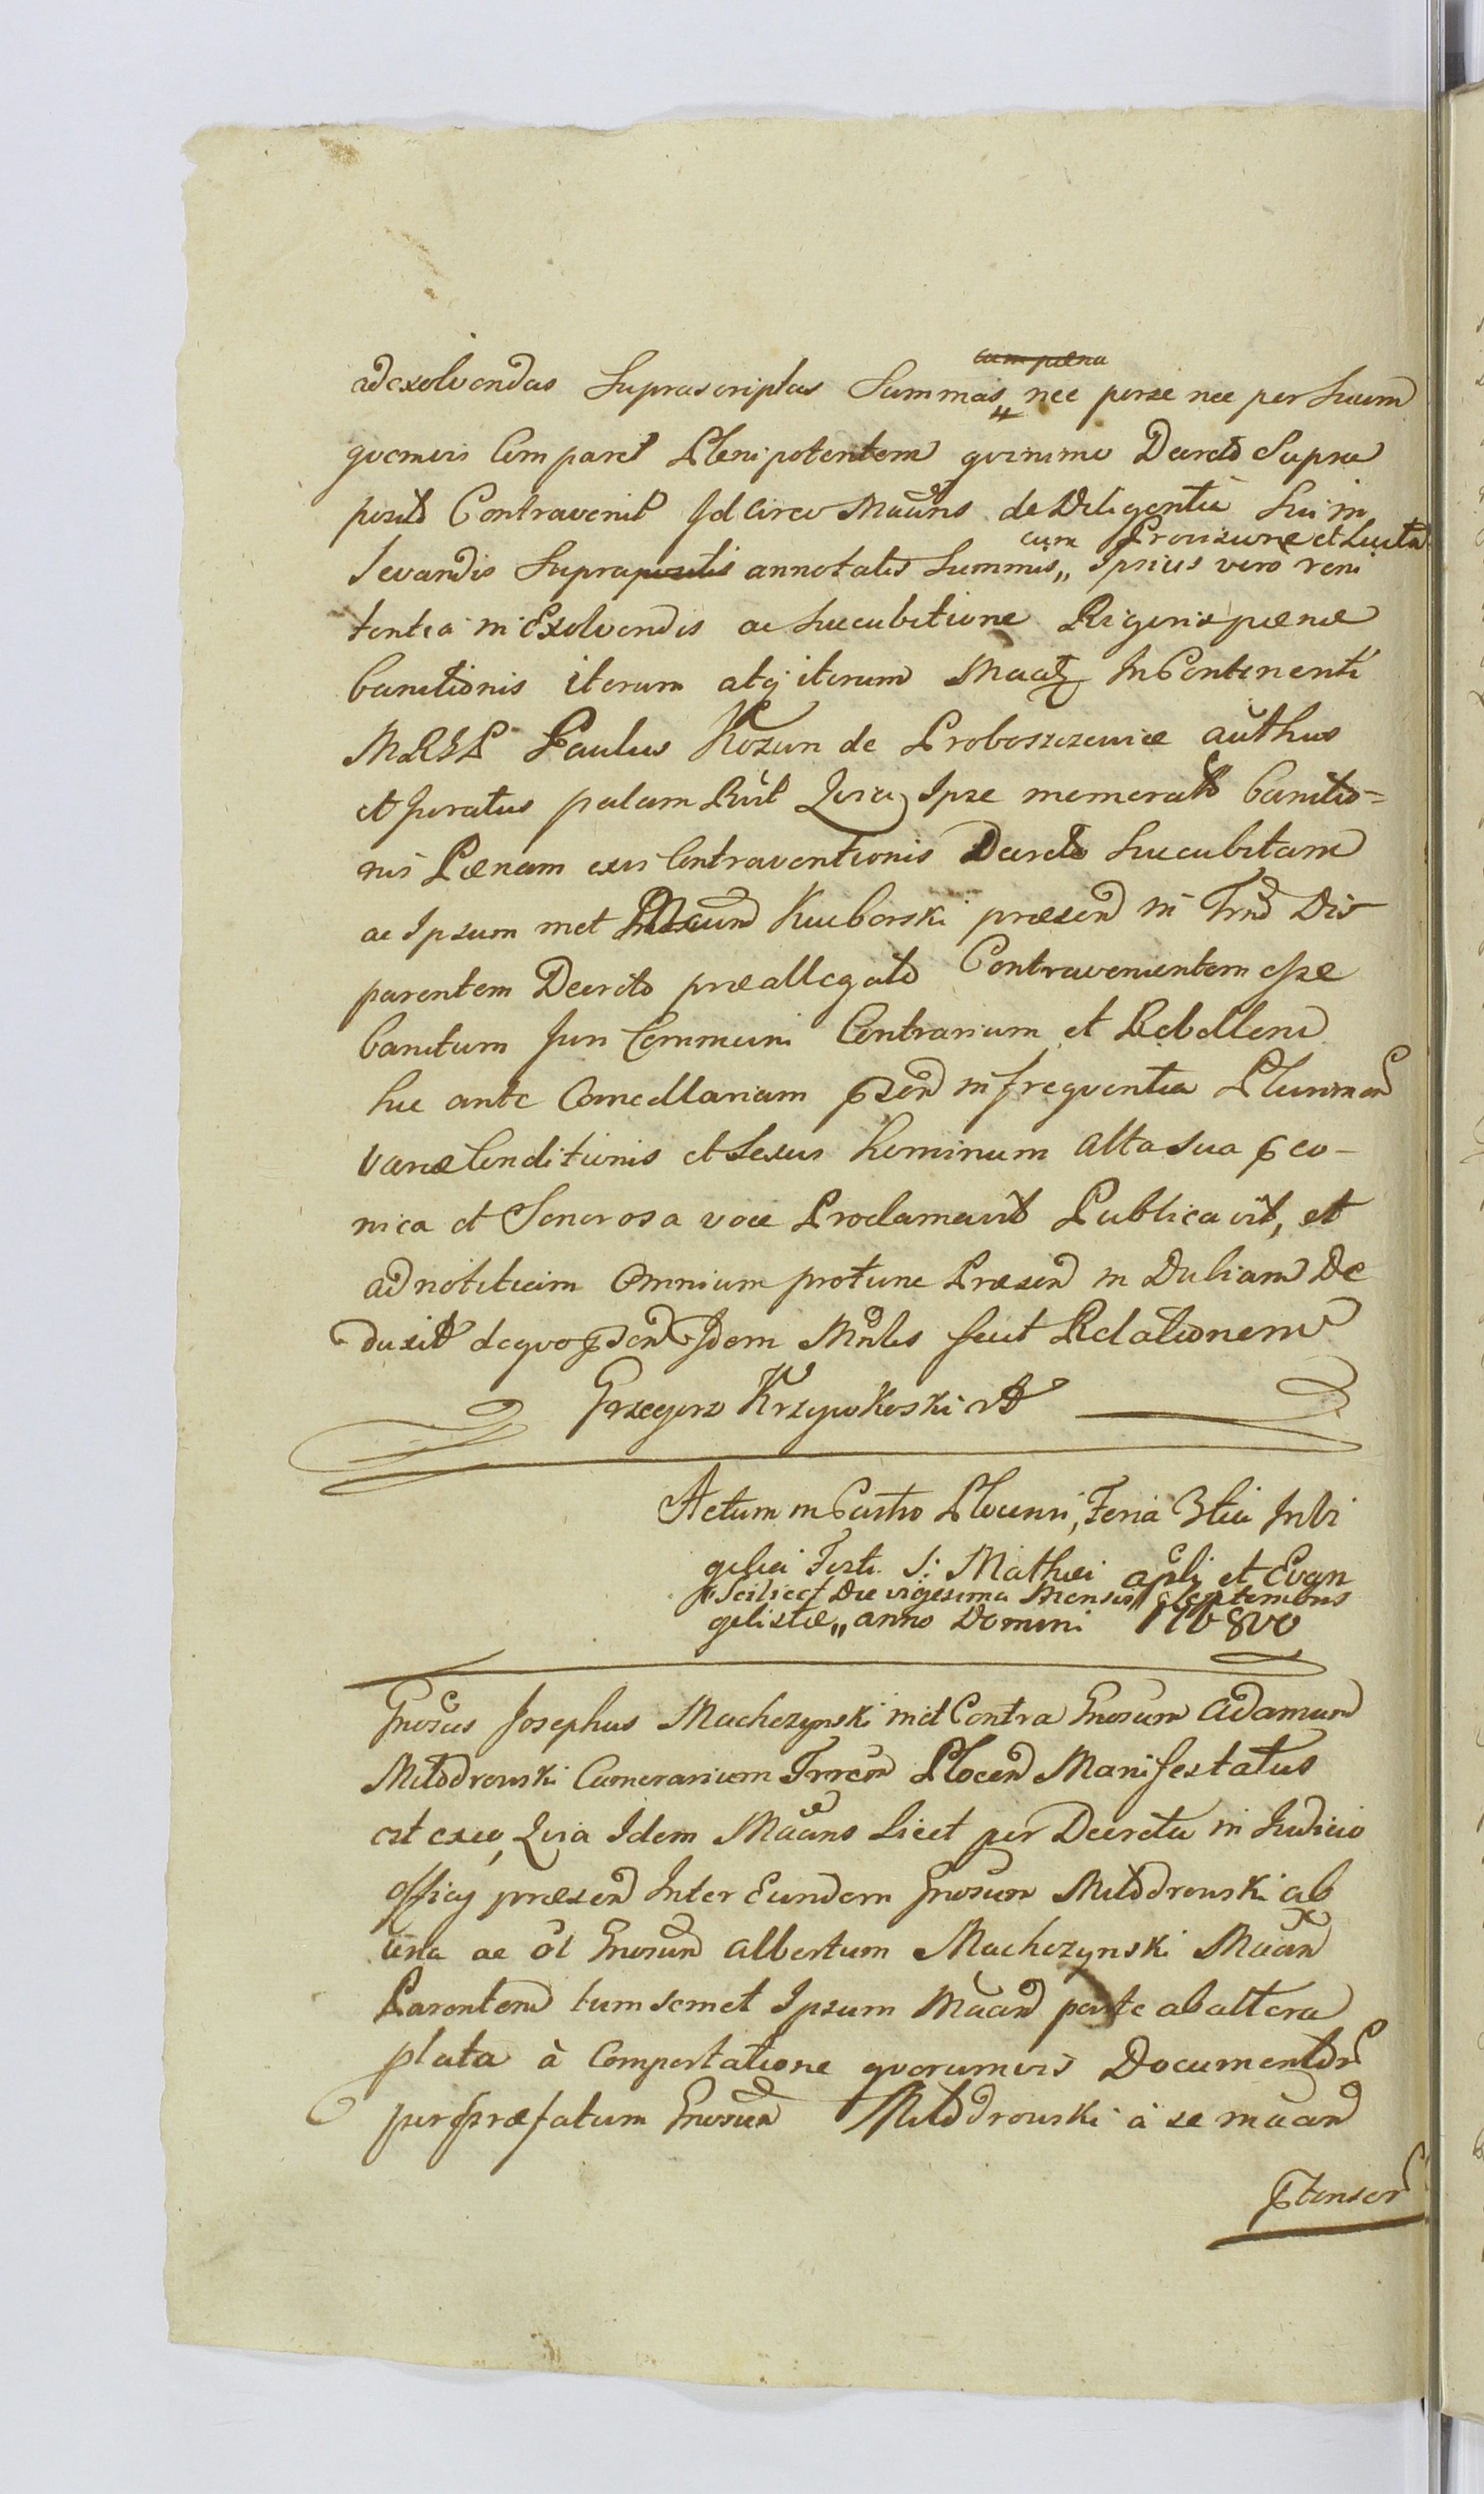 adexolvendas Suprascriptas Summas cum pœna nec perse nec per Suum
quemvis Comparet Plenipotentem quinimo Decreto Supra
posito Contravenit Idcirco Maãns de Diligentia Sui in
levandis Suprapositis annotatis Summis,, cum Provisione et Lucta Ipsius vero reni
tentia in Exolvendis ac Succubitione Rigoris pœnæ
banitionis iterum atq iterum In Continenti
MRGL Paulus Kozun de Proboszczewice authus
et Juratus palam Quia Ipse memorato banitio=
nis Pœnam exvi Contraventionis Decreto Succubitam
ac Ipsum met Kuborski præsen in Trno Dis
parentem Decreto præallegato Contravenientem esse
banitum Juri Communi Contrarium et Rebellem
hic ante Cancellariam in frequentia Plurimor
variæ Conditionis et Sexus hominum alta sua
nica et Sonorosa voce Proclamavit Publicavit, et
ad notitiam Omnium protunc Præsen in Dubiam De
duxit dequo Idem Mnlis fecit Relationem
Grzegorz
Actum in Castro Plocensi, Feria 3tia In Vi
gilia Festi S: Mathæi apli et Evan
Scilicet Die vigesima Mensis Septembris
gelistæ,, anno Domini 1768vo
Gnosus Josephus Machczynski met Contra Gnosum Adamum
Miłodrowski Camerarium Plocen Manifestatus
est exeo, Quia Idem Maãns licet per Decreta in Judicio
officij præsen Inter Eundem Gnosum Miłodrowski ab
una ac Gnosum Albertum Machczynski Maan
Parentem tum semet Ipsum Maan parte ab altera
plata à Comportatione quorumvis Documentor
per præfatum Gnosum Miłodrowski à se maan